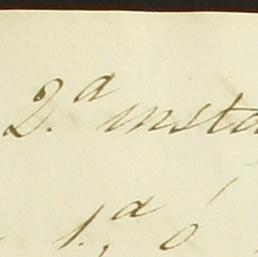 2.ª insta
1.ª ó